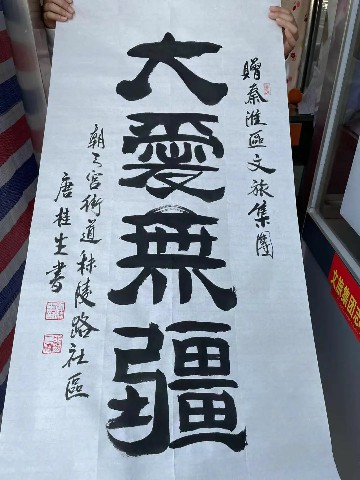 贈秦淮區文旅集團
大愛無疆
朝天宮街道秣陵路社區
唐桂生書